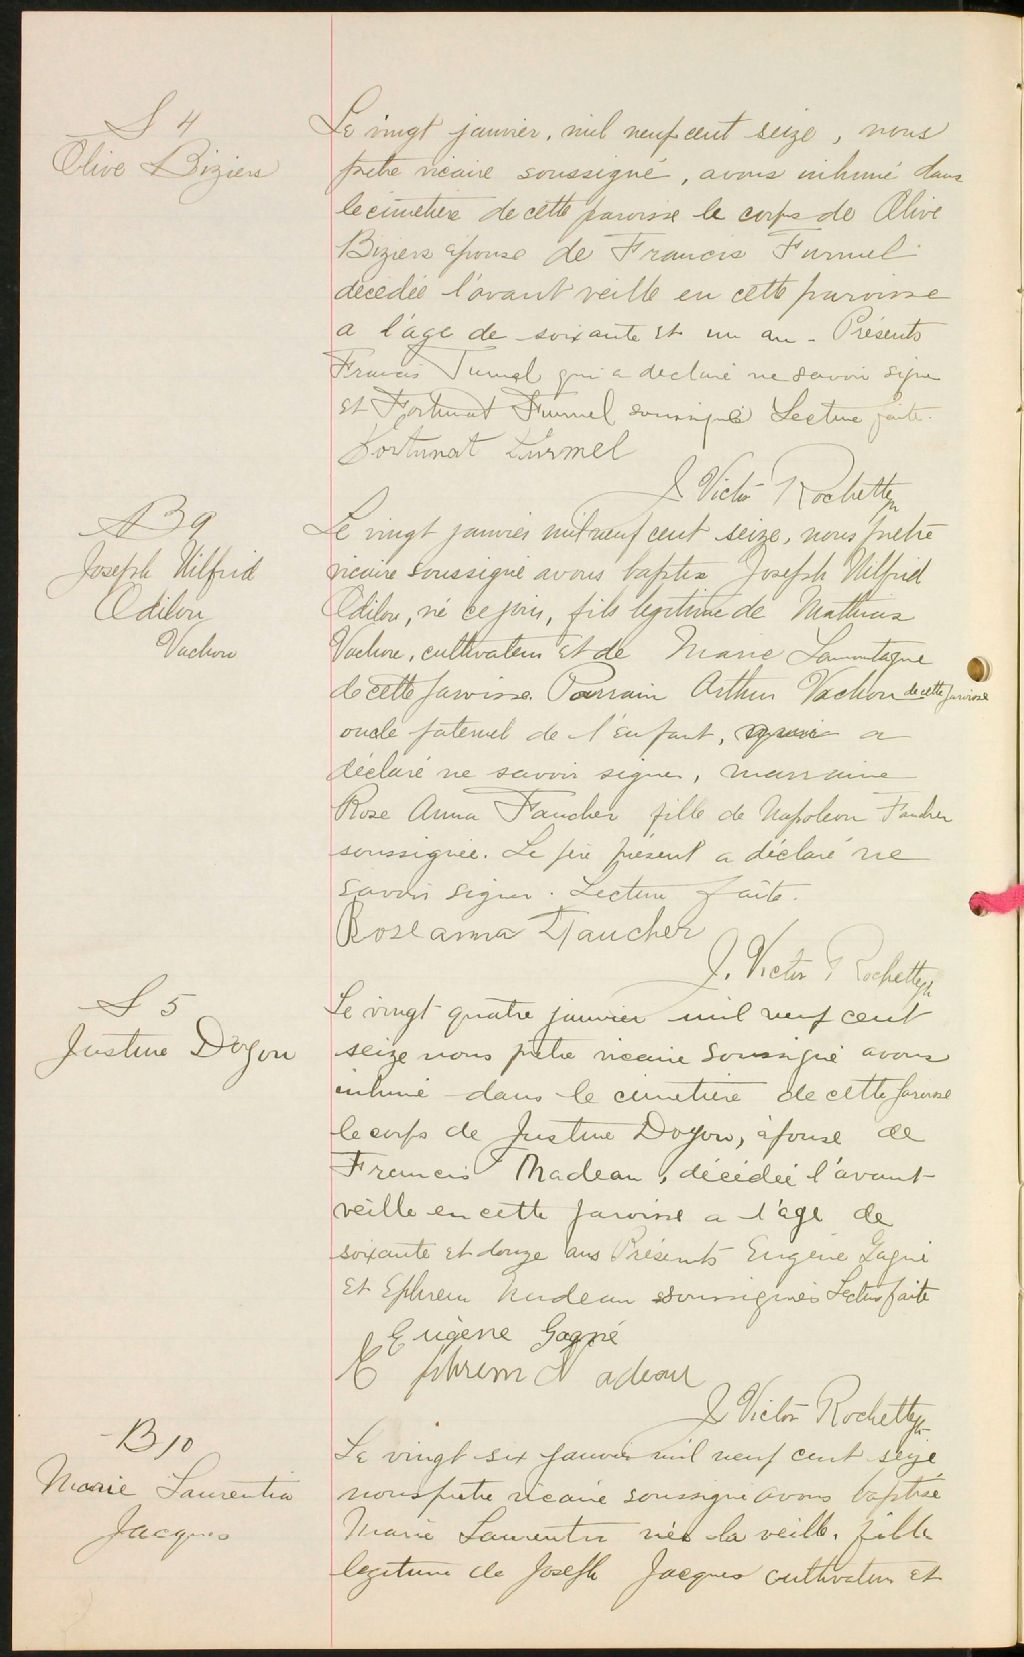 S 4
Olive Biziers
Le vingt janvier, mil neuf cent seize, nous
prêtre vicaire soussigné, avons inhumé dans
le cimetière de cette paroisse le corps de Olive
Biziers épouse de Francis Turmel
décédée l'avant veille en cette paroisse
a l'âge de soixante et un an. Présents
Francis Turmel qui a declaré ne savoir signer
et Fortunat Turmel soussigné Lecture faite.
Fortunat Turmel
J. Victor Rochette ptr
B 9
Joseph Wilfrid
Odilon
Vachon
Le vingt janvier mil neuf cent seize, nous prêtre
vicaire soussigné avons baptisé Joseph Wilfrid
Odilon, né ce jour, fils légitime de Mathias
Vachon, cultivateur et de Marie Lamontagne
de cette paroisse. Parrain Arthur Vachon de cette paroisse
oncle paternel de l'enfant, qui a
déclaré ne savoir signer, marraine
Rose Anna Faucher fille de Napoleon Faucher
soussignée. Le père présent a déclaré ne
savoir signer. Lecture faite.
Rose anna Faucher
J. Victor Rochette ptr
S 5
Justine Doyon
Le vingt quatre janvier mil neuf cent
seize nous prêtre vicaire soussigné avons
inhumé dans le cimetière de cette paroisse
le corps de Justine Doyon, épouse de
Francis Nadeau, décédée l'avant
veille en cette paroisse a l'âge de
soixante et douze ans Présents Eugène Gagné
et Ephrem Nadeau soussignés Lecture faite
Eugène Gagné
Ephrem Nadeau
J. Victor Rochette ptr
B 10
Marie Laurentia
Jacques
Le vingt six janvier mil neuf cent seize
nous prêtre vicaire soussigné avons baptisé
Marie Laurentia née la veille, fille
legitime de Joseph Jacques cultivateur et